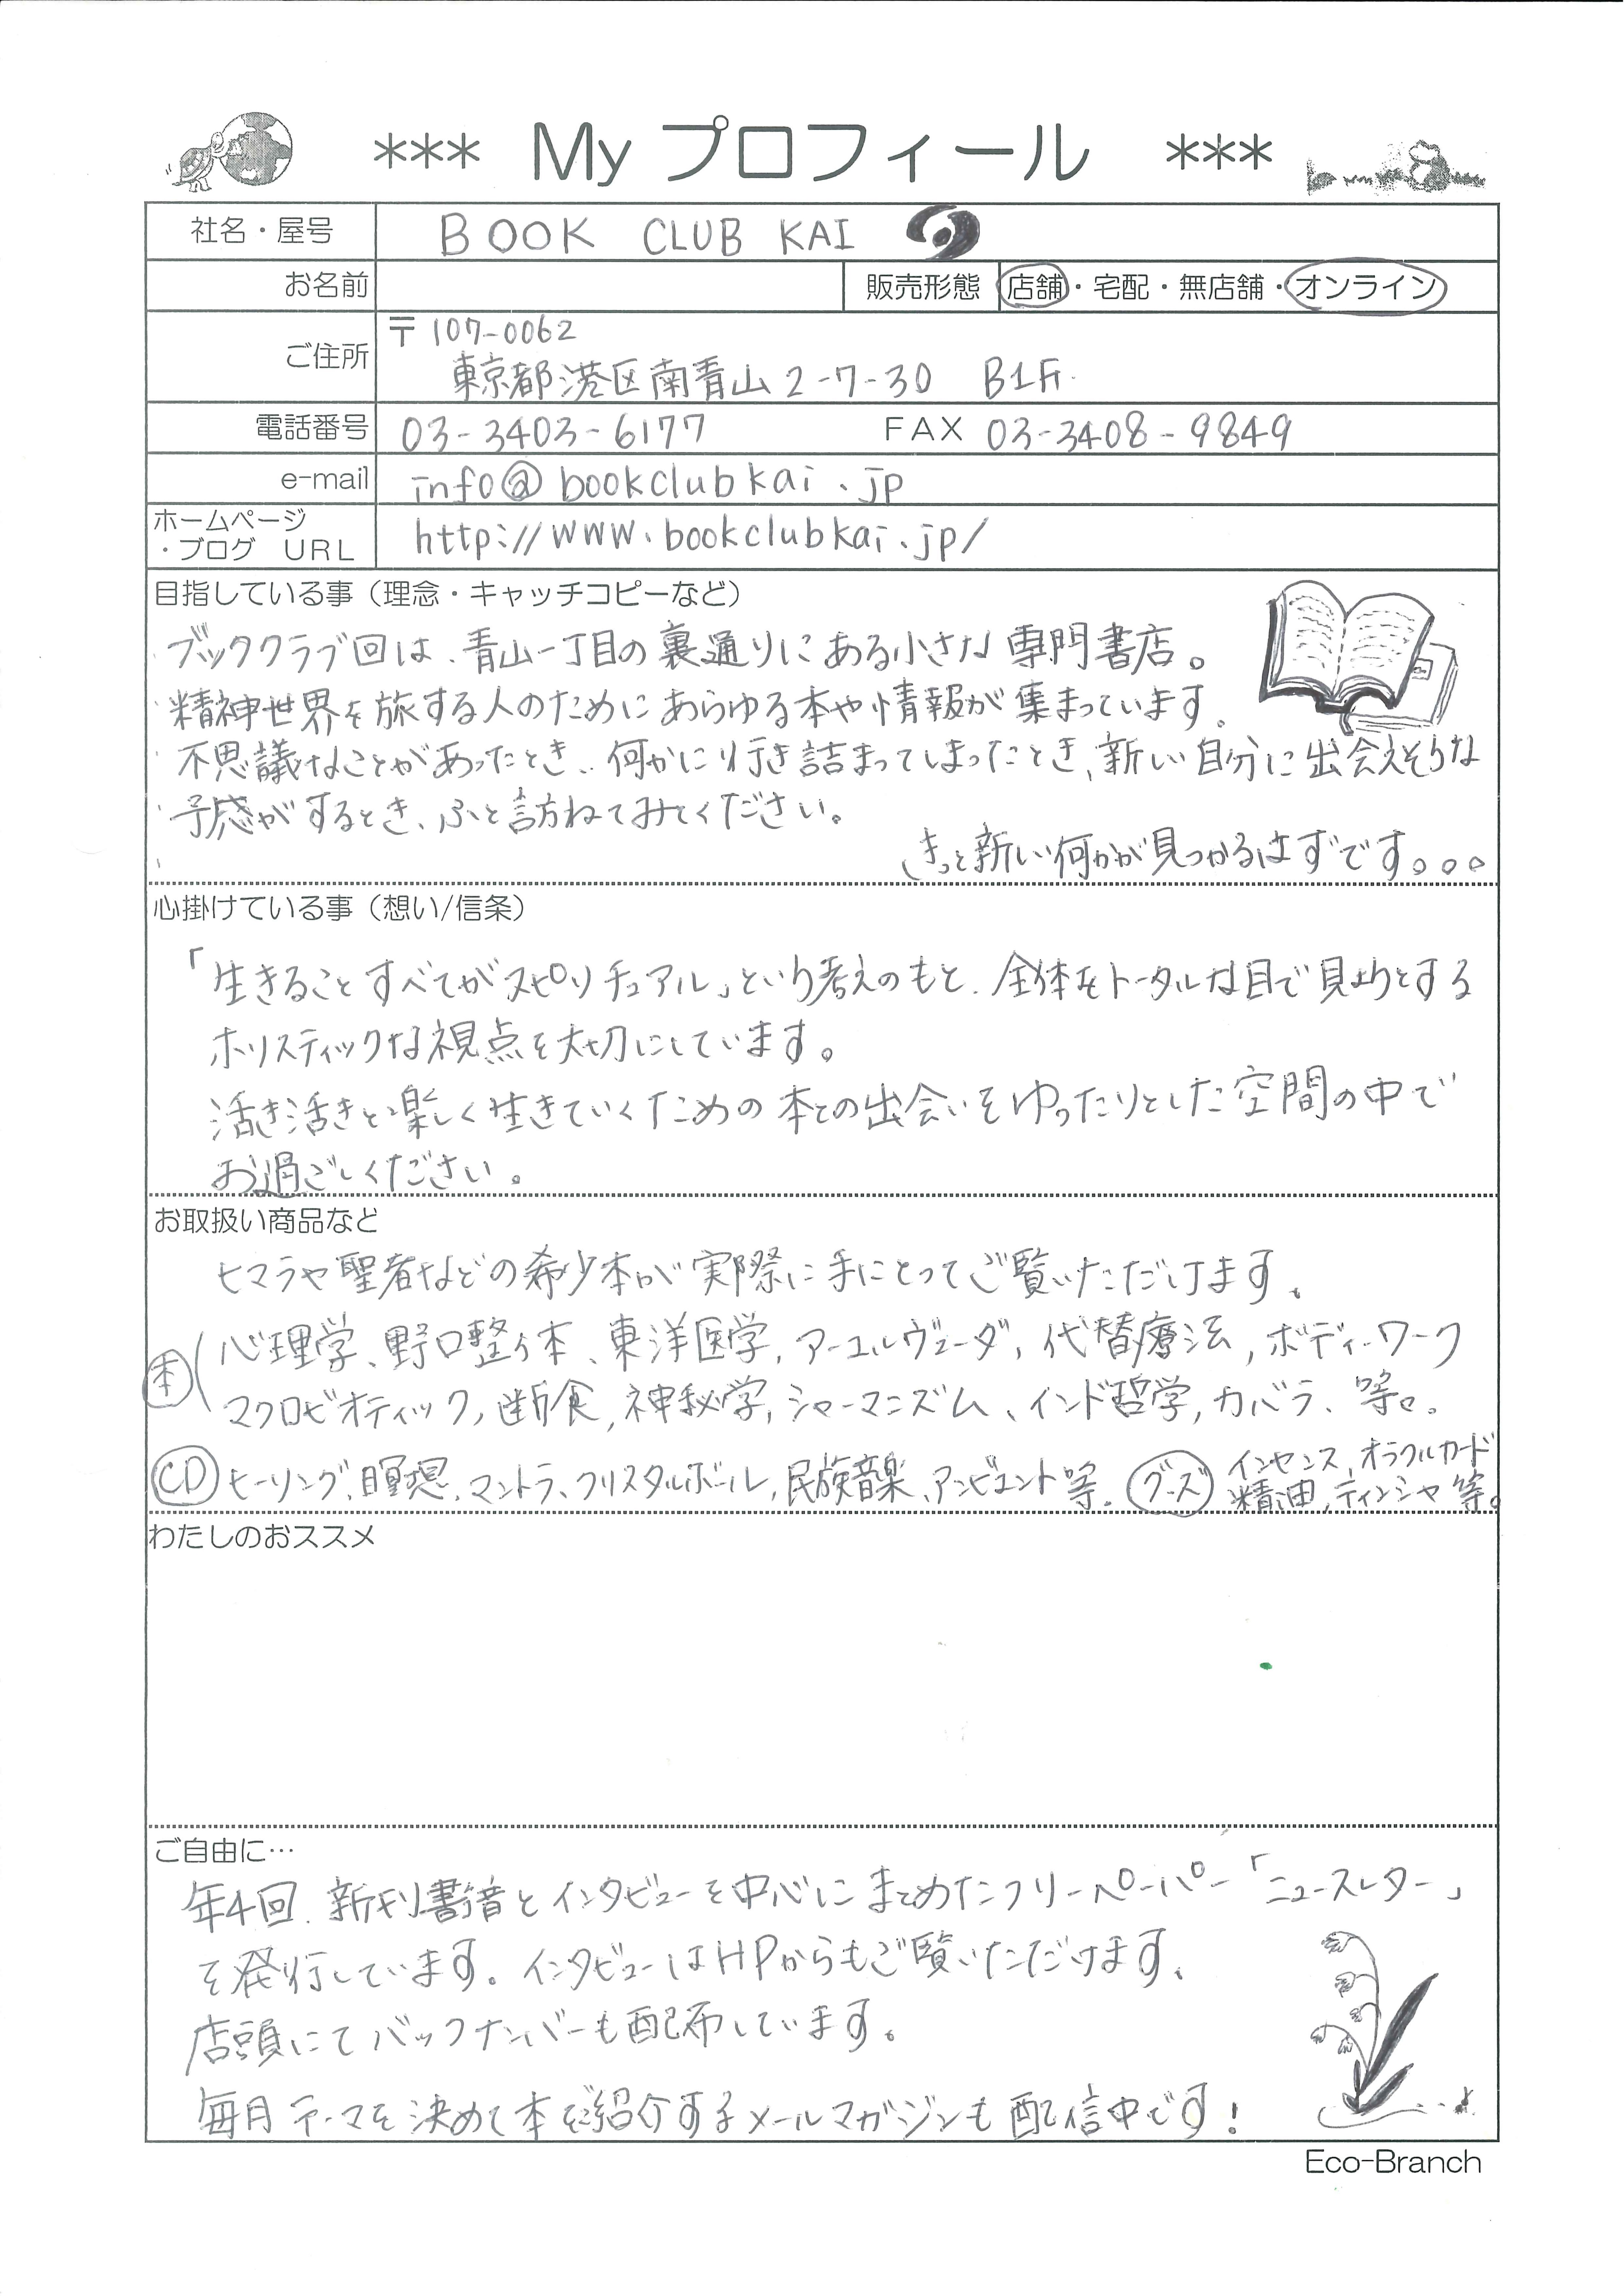 *** My プロフィール ***
社名・屋号 BOOK CLUB KAI
お名前 販売形態 店舗・宅配・無店舗・オンライン
ご住所 〒107-0062
東京都港区南青山2-7-30 B1F.
電話番号 03-3403-6177 FAX 03-3408-9849
e-mail info@bookclubkai.jp
ホームページ
・ブログ URL http://www.bookclubkai.jp/
目指している事（理念・キャッチコピーなど）
ブッククラブ回は、青山一丁目の裏通りにある小さな専門書店。
精神世界を旅する人のためにあらゆる本や情報が集まっています。
不思議なことがあったとき、何かに行き詰まってしまったとき、新しい自分に出会えそうな
予感がするとき、ふと訪ねてみてください。
きっと新しい何かが見つかるはずです。。。
心掛けている事（想い/信条）
「生きることすべてがスピリチュアル」という考えのもと、全体をトータルな目で見ようとする
ホリスティックな視点を大切にしています。
活き活きと楽しく生きていくための本との出会いをゆったりとした空間の中で
お過ごしください。
お取扱い商品など
ヒマラヤ聖者などの希少本が実際に手にとってご覧いただけます。
本 心理学、野口整体、東洋医学、アーユルヴェーダ、代替療法、ボディーワーク
マクロビオティック、断食、神秘学、シャーマニズム、インド哲学、カバラ、等。
CD ヒーリング、瞑想、マントラ、クリスタルボール、民族音楽、アンビエント等。 グッズ インセンス、オラクルカード
精油、ティンシャ等。
わたしのおススメ
ご自由に…
年4回、新刊書籍とインタビューを中心にまとめたフリーペーパー「ニュースレター」
を発行しています。インタビューはHPからもご覧いただけます。
店頭にてバックナンバーも配布しています。
毎月テーマを決めて本をご紹介するメールマガジンも配信中です！
Eco-Branch